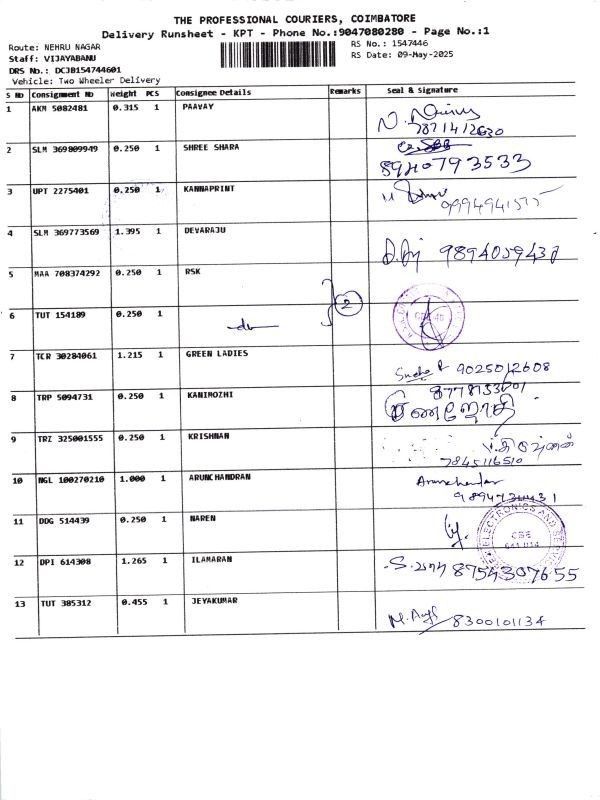 THE PROFESSIONAL COURIERS, COIMBATORE
Delivery Runsheet - KPT - Phone No.:9047080280 - Page No.:1
Route: NEHRU NAGAR RS No.: 1547446
Staff: VIJAYABANU RS Date: 09-May-2025
DRS No.: DCJB154744601
Vehicle: Two Wheeler Delivery
S No Consignment No Weight PCS Consignee Details Remarks Seal & Signature
1 AKM 5082481 0.315 1 PAAVAY
7871412630
2 SLM 369809949 0.250 1 SHREE SHARA
8940793533
3 UPT 2275401 0.250 1 KANNAPRINT
4 SLM 369773569 1.395 1 DEVARAJU
5 MAA 708374292 0.250 1 RSK
2
6 TUT 154189 0.250 1
7 TCR 30284061 1.215 1 GREEN LADIES
9025012608
8 TRP 5094731 0.250 1 KANIMOZHI
9 TRZ 325001555 0.250 1 KRISHNAN
7845116510
10 NGL 100270210 1.000 1 ARUNCHANDRAN
11 DDG 514439 0.250 1 NAREN
ELECTRONICS AND
CBE
12 DPI 614308 1.265 1 ILAMARAN
8754307655
13 TUT 385312 0.455 1 JEYAKUMAR
8300101134